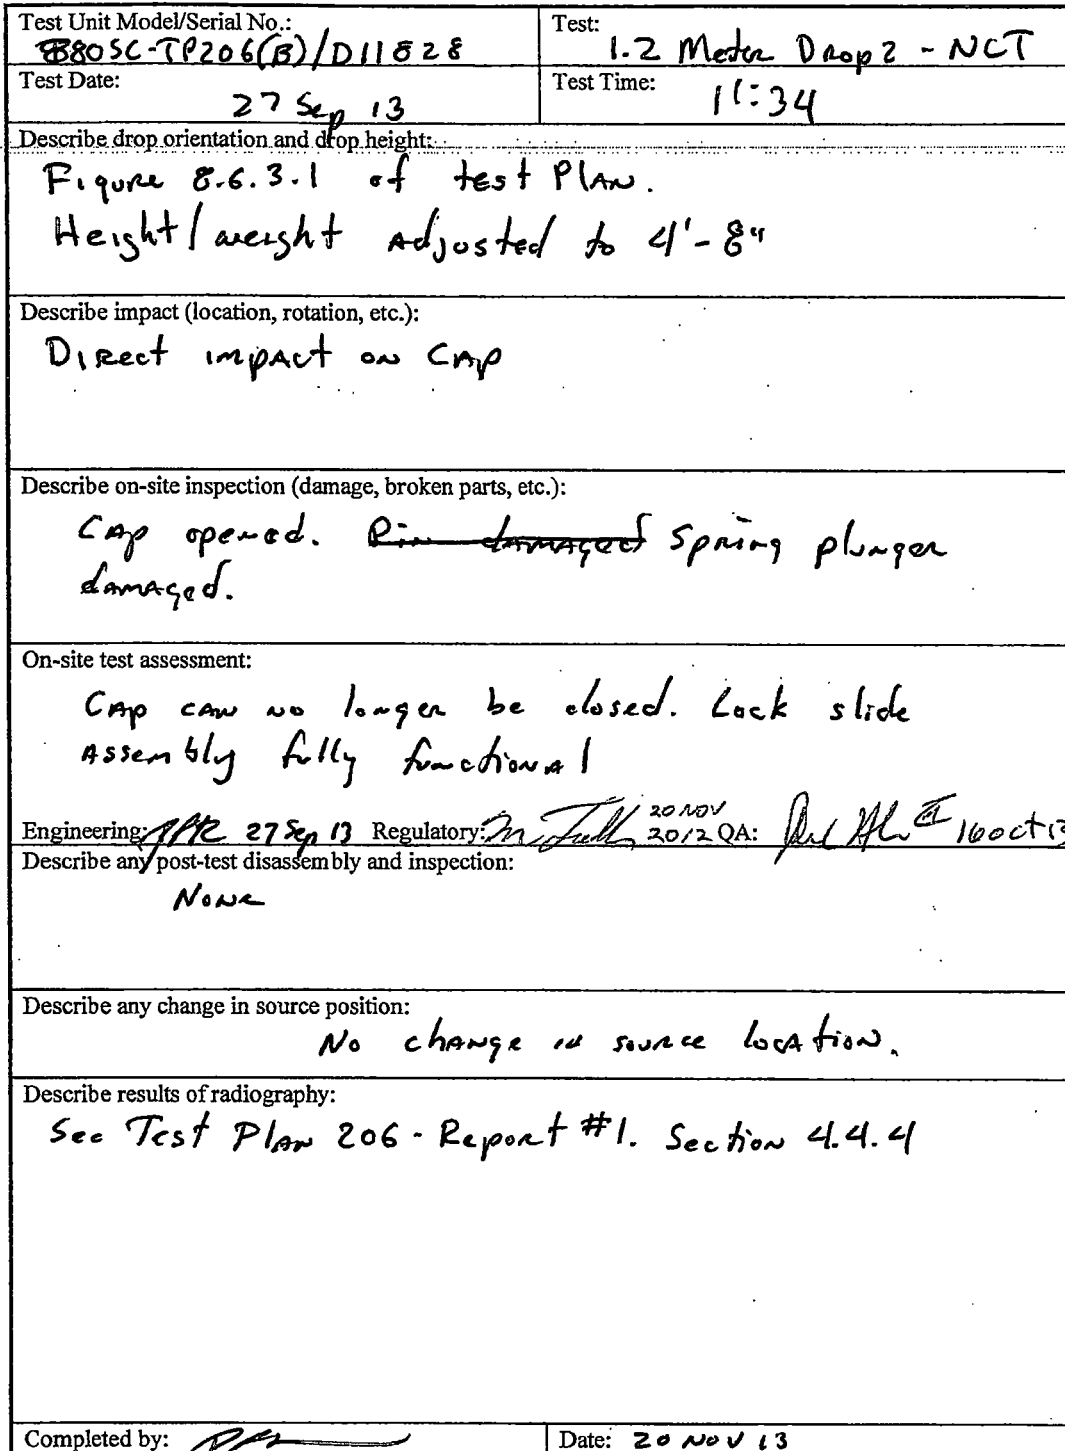 Test Unit Model/Serial No.:
880SC-TP206(B)/D11828
Test:
1.2 Meter Drop 2 - NCT
Test Date:
27 Sep 13
Test Time:
11:34
Describe drop orientation and drop height:
Figure 8.6.3.1 of test Plan.
Height/weight Adjusted to 4'-8"
Describe impact (location, rotation, etc.):
Direct impact on Cap
Describe on-site inspection (damage, broken parts, etc.):
Cap opened. damaged Spring plunger
damaged.
On-site test assessment:
Cap can no longer be closed. Lock slide
Assembly fully functional
Engineering: 27 Sep 13 Regulatory: 20 NOV 2012 QA: 16 Oct 13
Describe any post-test disassembly and inspection:
None
Describe any change in source position:
No change in source location.
Describe results of radiography:
See Test Plan 206 - Report #1. Section 4.4.4
Completed by:
Date: 20 NOV 13